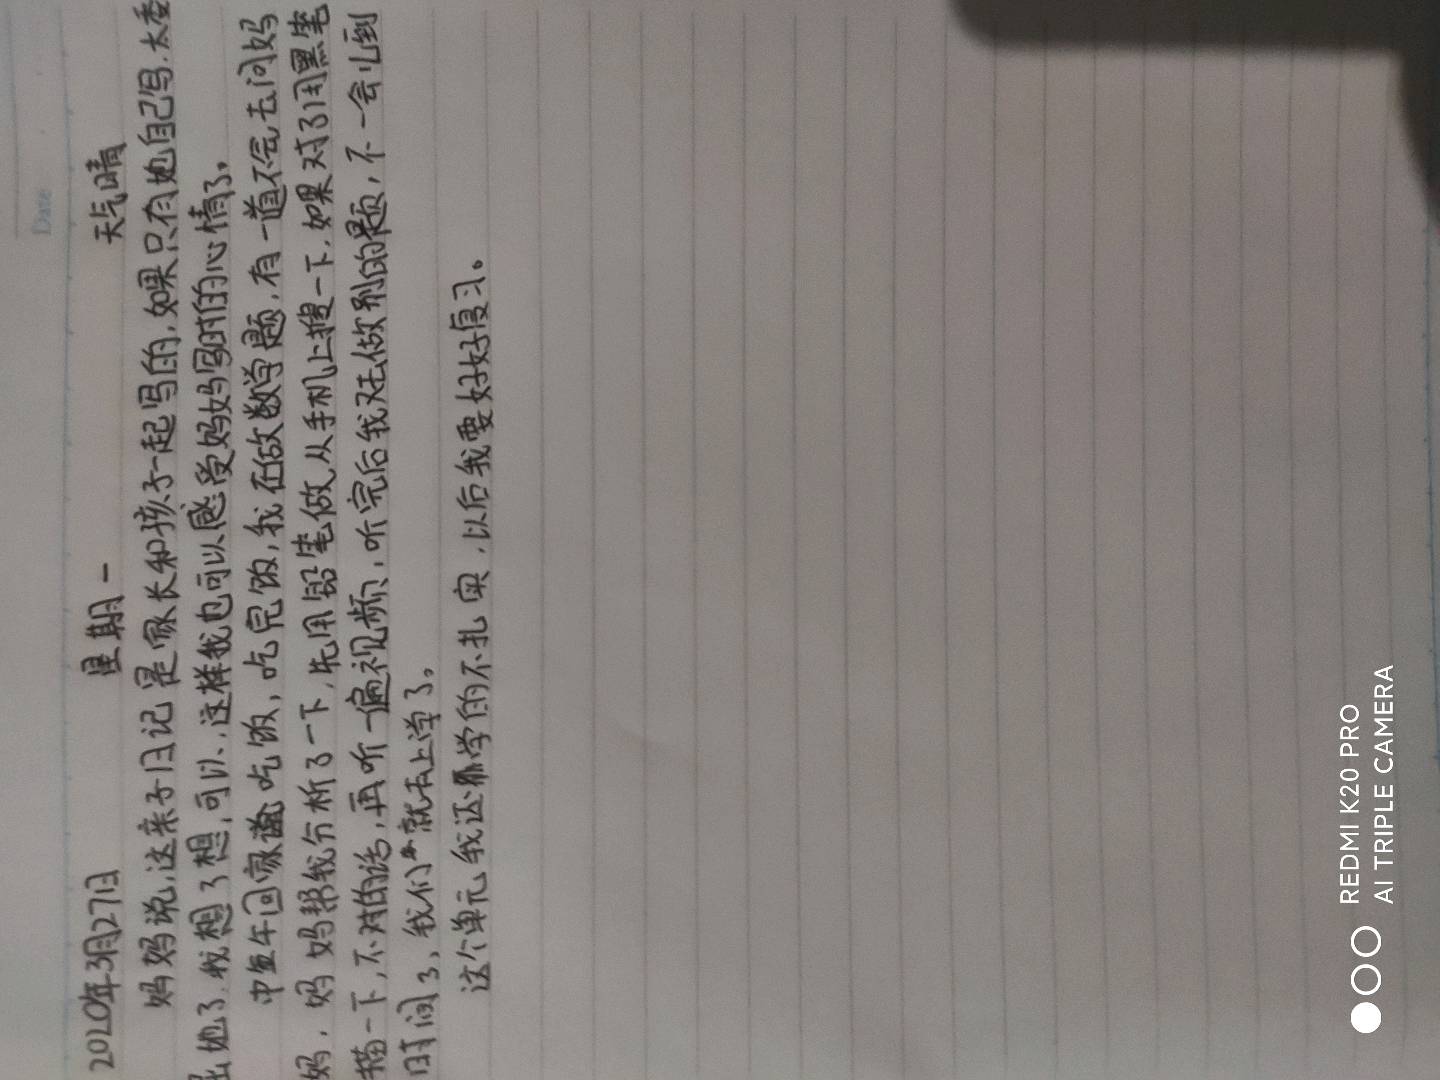 Date
2020年3月27日 星期一 天气晴
妈妈说,这亲子日记是家长和孩子一起写的,如果只有她自己写,太委
屈她了,我想了想,可以,这样我也可以感受妈妈写时的心情了。
中午回家吃饭,吃完饭,我在做数学题,有一道不会去问妈
妈,妈妈帮我分析了一下,先用铅笔做从手机上搜一下,如果对了用黑笔
描一下,不对的话,再听一遍视频,听完后我又去做别的题,不一会儿到
时间了,我们就去上学了。
这个单元我还学的不扎实,以后我要好好复习。
REDMI K20 PRO
AI TRIPLE CAMERA